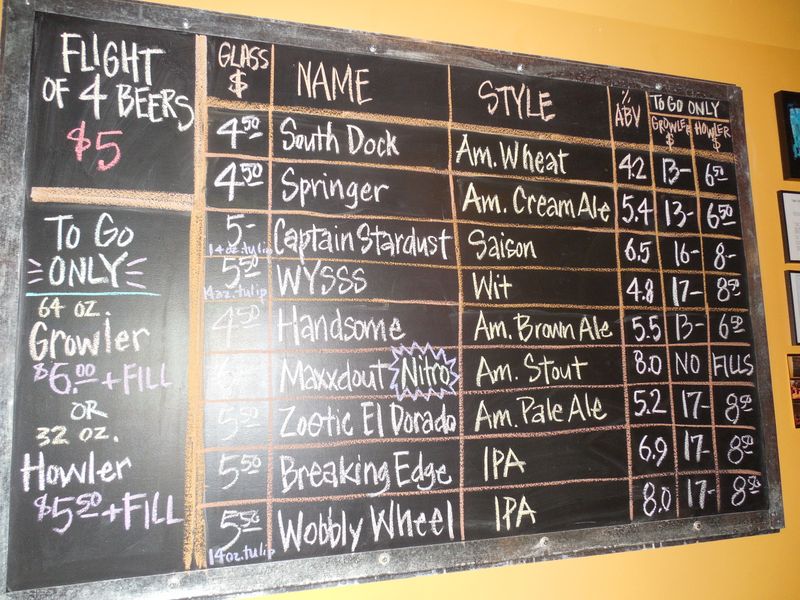 FLIGHT
OF 4 BEERS
$5
TO GO
ONLY
64 OZ.
Growler
$6.00 + FILL
OR
32 OZ.
Howler
$5.50 + FILL
GLASS $ NAME STYLE % ABV TO GO ONLY
GROWLER $ HOWLER $
4.50 South Dock Am. Wheat 4.2 13- 6.50
4.50 Springer Am. Cream Ale 5.4 13- 6.50
5- 14oz. tulip Captain Stardust Saison 6.5 16- 8-
5.50 14oz. tulip WYSSS Wit 4.8 17- 8.50
4.50 Handsome Am. Brown Ale 5.5 13- 6.50
Maxxdout Nitro Am. Stout 8.0 NO FILLS
5.50 Zoetic El Dorado Am. Pale Ale 5.2 17- 8.50
5.50 Breaking Edge IPA 6.9 17- 8.50
5.50 14oz. tulip Wobbly Wheel IPA 8.0 17- 8.50